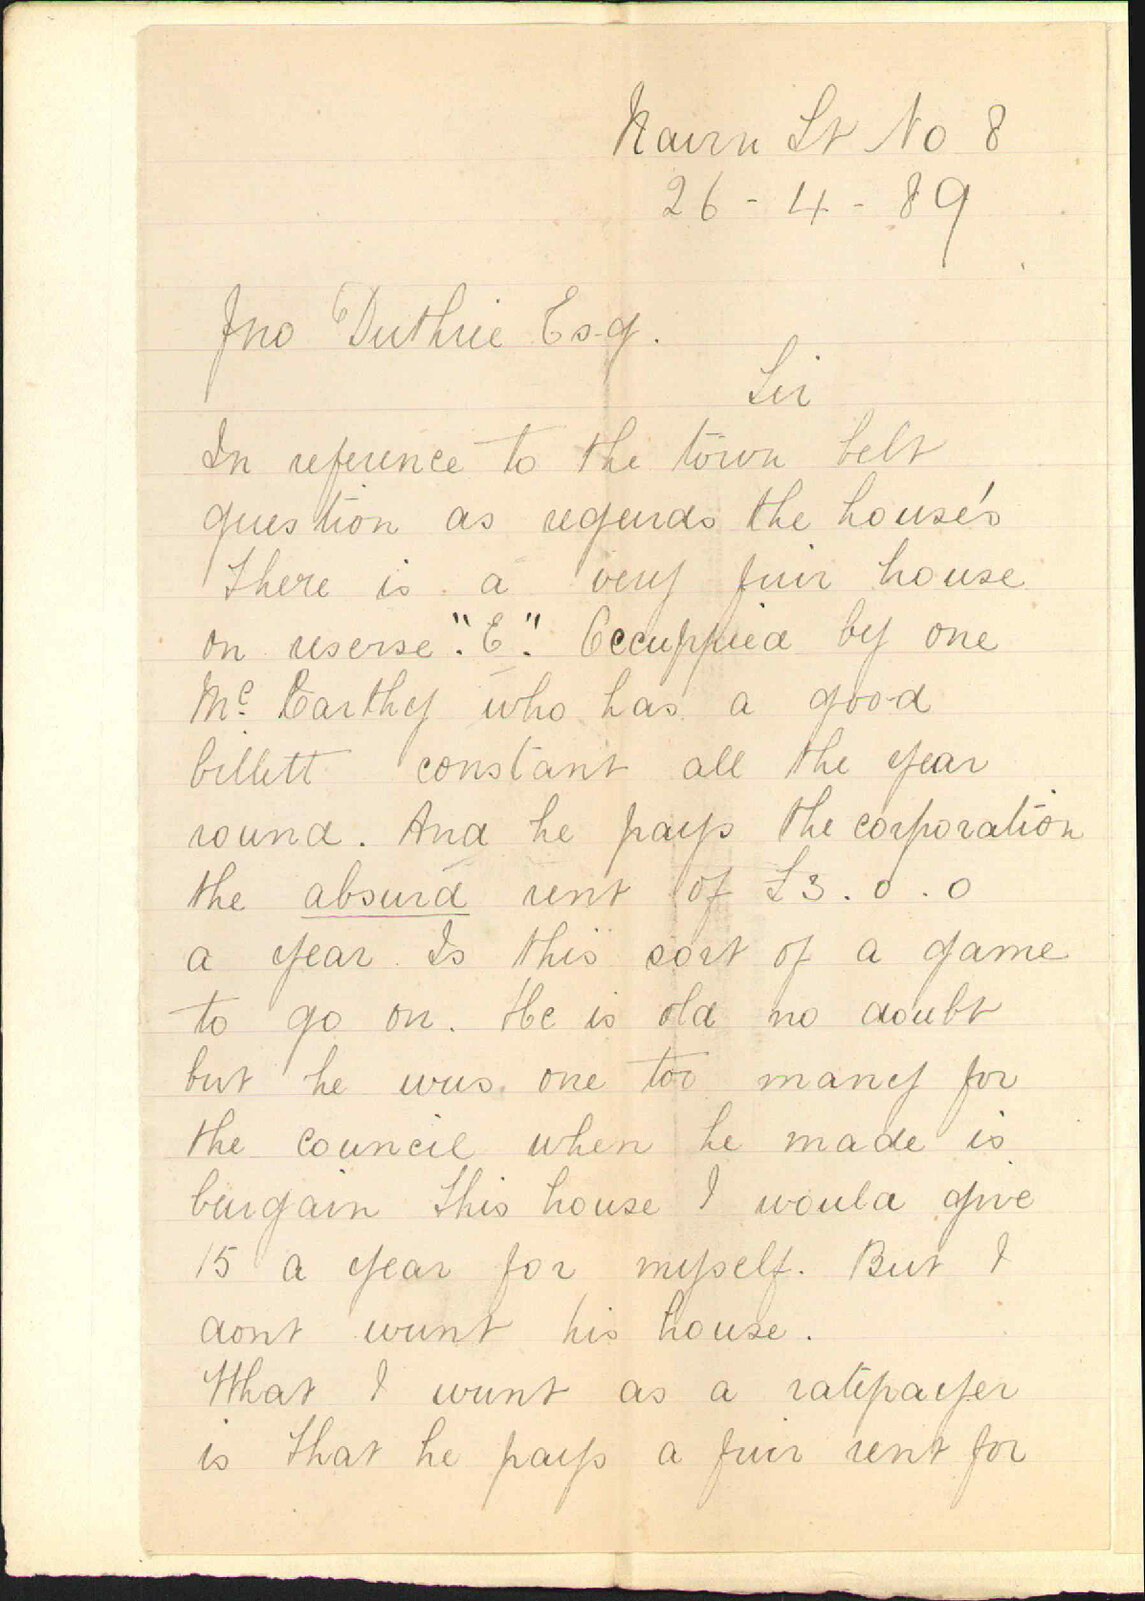 Nairn St No 8
26 - 4 - 89
Jno Duthie Esq.
Sir
In reference to the town belt
question as regards the house's
there is a very fair house
on reserse "E". Occuppied by one
Mc. Carthey who has a good
billett constant all the year
round. And he pays the corporation
the absurd rent of £3.0.0
a year. Is this sort of a game
to go on. He is old no doubt
but he was one too many for
the council when he made is
bargain this house I would give
15 a year for myself. But I
dont want his house.
What I want as a ratepayer
is that he pays a fair rent for